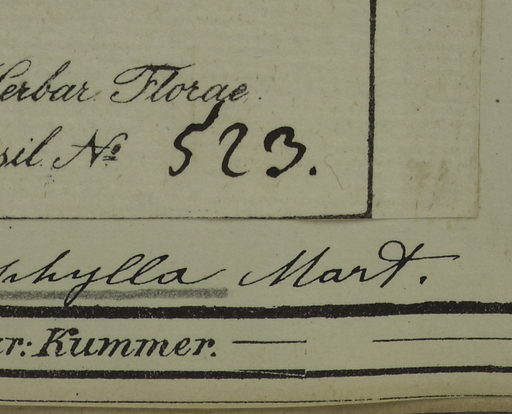 Herbar. Florae
sil. № 523.
phylla Mart.
ar: Kummer.